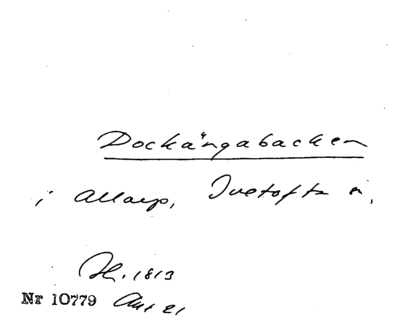 Dockängabacken
i Allarp, Tvetofta s,
H. 1813
Nr 10779 Akt 21